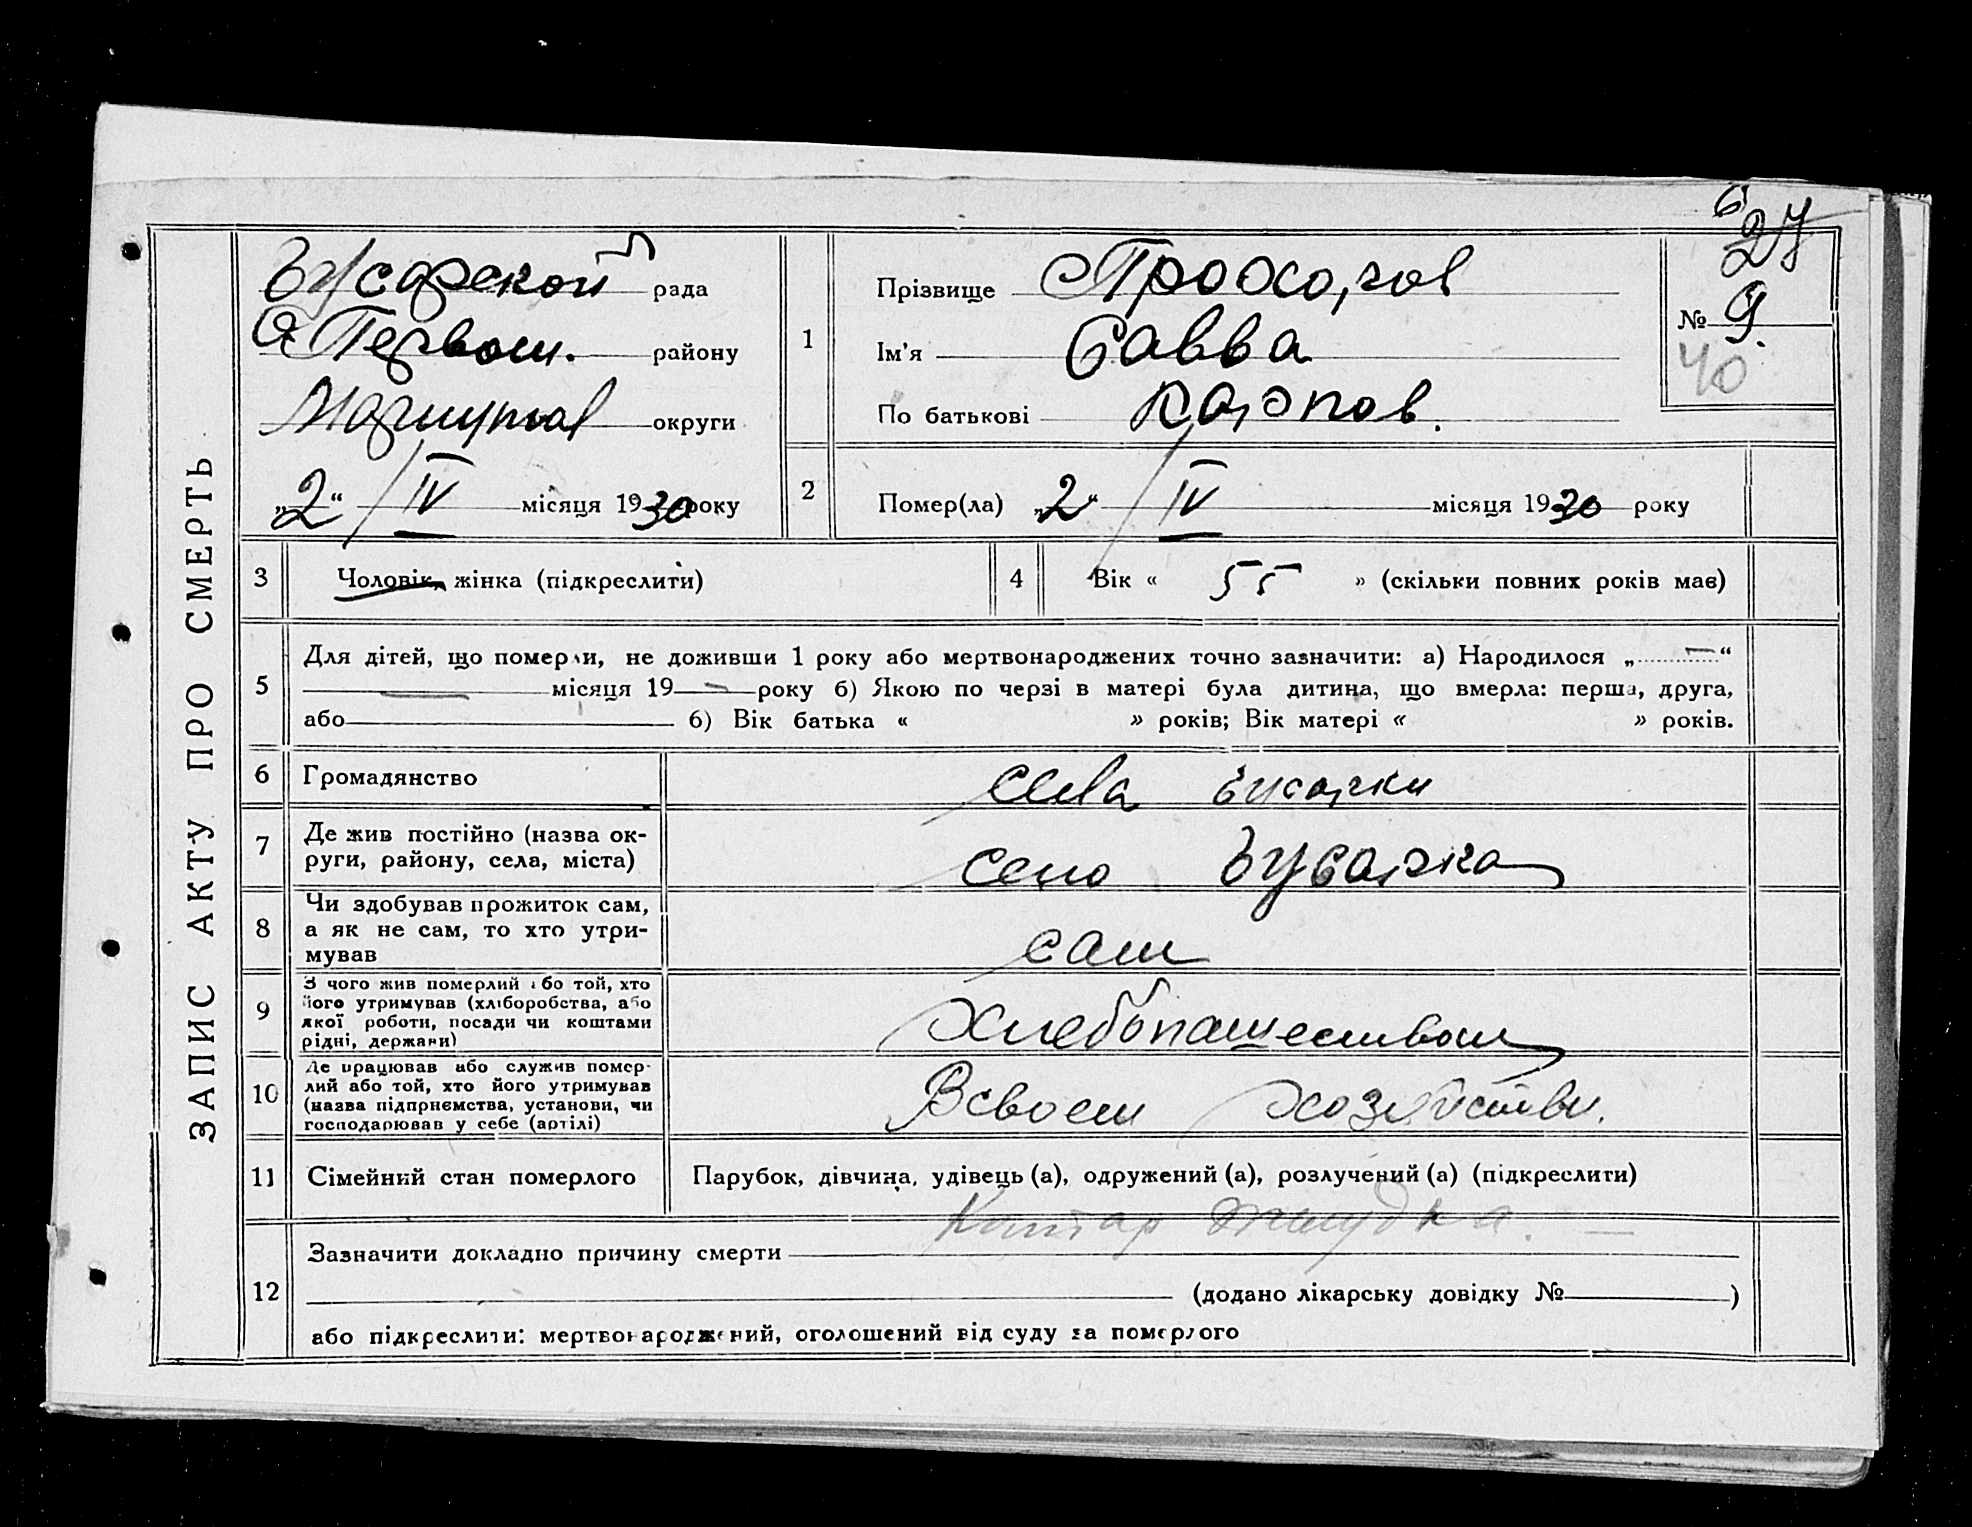 ЗАПИС АКТУ ПРО СМЕРТЬ
рада
району
Мариупол округи
„2“ / IV місяця 1930 року
1
Прізвище
Ім'я Савва
По батькові Карпов.
27
№ 9.
40
2
Помер(ла) „2“ / IV місяця 1930 року
3
Чоловік, жінка (підкреслити)
4
Вік « 55 » (скільки повних років має)
5
Для дітей, що померли, не доживши 1 року або мертвонароджених точно зазначити: а) Народилося „ — “
— місяця 19 — року б) Якою по черзі в матері була дитина, що вмерла: перша, друга,
або б) Вік батька « » років; Вік матері « » років.
6
Громадянство
села
7
Де жив постійно (назва ок-
руги, району, села, міста)
село
8
Чи здобував прожиток сам,
а як не сам, то хто утри-
мував
сам
9
З чого жив померлий або той, хто
його утримував (хліборобства, або
якої роботи, посади чи коштами
рідні, держави)
Хлебопашеством
10
Де працював або служив помер-
лий або той, хто його утримував
(назва підприємства, установи, чи
господарював у себе (артілі)
В своем хозяйстви.
11
Сімейний стан померлого
Парубок, дівчина, удівець (а), одружений (а), розлучений (а) (підкреслити)
12
Катар желудка. —
Зазначити докладно причину смерти
(додано лікарську довідку № )
або підкреслити: мертвонароджений, оголошений від суду за померлого